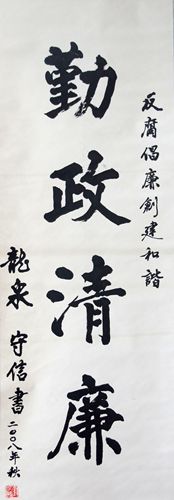 反腐倡廉創建和諧
勤政清廉
龍泉 守信書
二〇〇八年秋